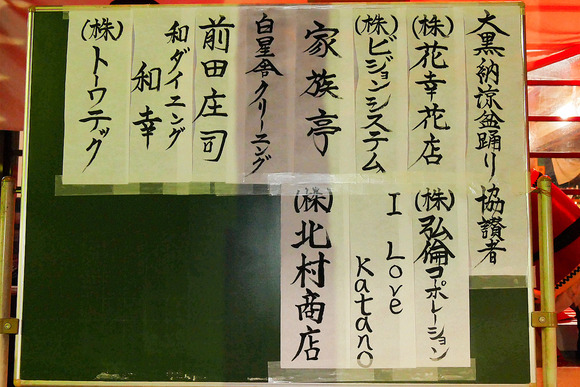 大黒納涼盆踊り協讃者
(株)花幸花店
(株)ビジョンシステム
家族亭
白星舎クリーニング
前田庄司
和ダイニング
和幸
(株)トーワテック
(株)弘倫コーポレーション
I Love
Katano
(株)北村商店